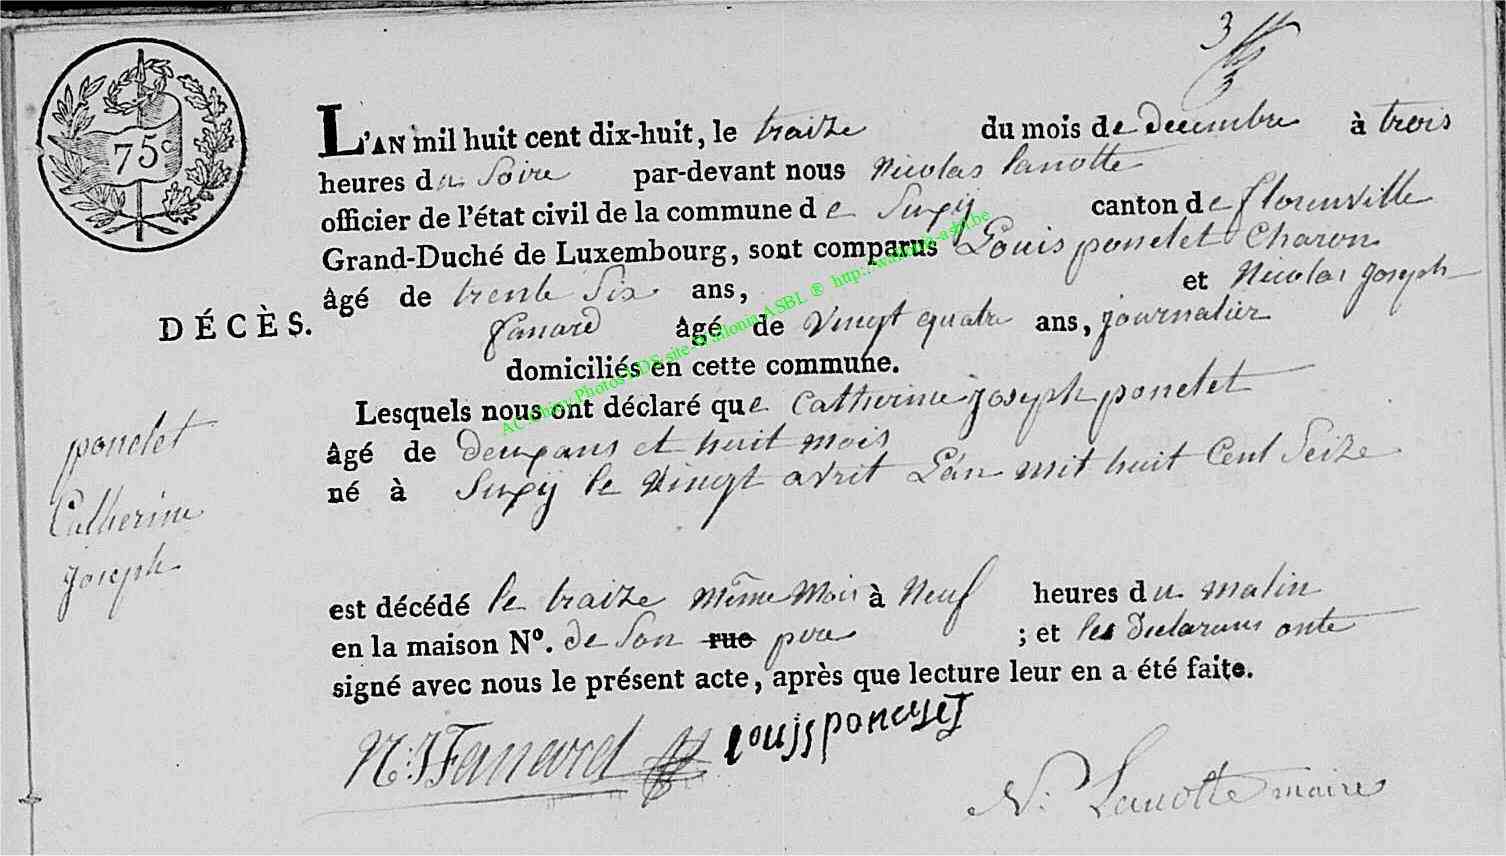 3
75c
L'AN mil huit cent dix-huit, le traize du mois de decembre à trois
heures du Soire par-devant nous Nicolas Lanotte
officier de l'état civil de la commune de Suxÿ canton de florenville
Grand-Duché de Luxembourg, sont comparus Louis ponclet Charon
âgé de trente Six ans, et Nicolas joseph
fanard âgé de vingt quatre ans, journalier
domiciliés en cette commune.
DÉCÈS.
Lesquels nous ont déclaré que Catherine joseph ponclet
âgé de deux ans et huit mois
né à Suxÿ le vingt avril L'an mil huit Cent Seize
ponclet
Catherine
joseph
est décédé le traize même mois à neuf heures du matin
en la maison N°. de Son rue pere ; et les Declarans onte
signé avec nous le présent acte, après que lecture leur en a été faite.
N:J Fanard Louis poncelet
N: Lanotte maire